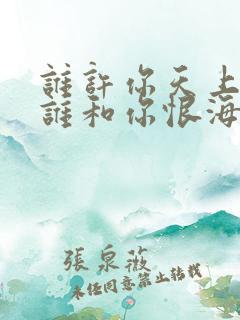 誰許你天上
誰和你恨海
張泉薇
未经同意禁止转载